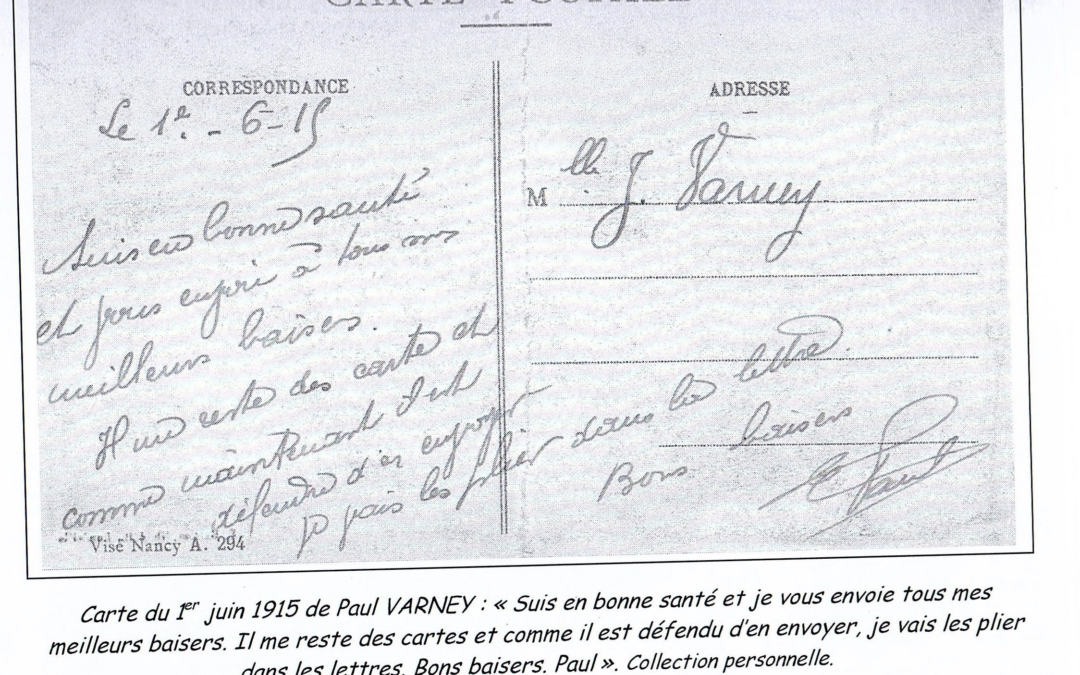 CARTE POSTALE
CORRESPONDANCE
Le 1e. - 6-15
Suis en bonne santé
et vous envoie à tous mes
meilleurs baisers.
Il me reste des carte et
comme maintenant il est
défendre d'en envoyer
je vais les plier dans la lettre.
Bons baisers
Paul
Visé Nancy A. 294
ADRESSE
M lle J. Varney
Carte du 1er juin 1915 de Paul VARNEY : « Suis en bonne santé et je vous envoie tous mes
meilleurs baisers. Il me reste des cartes et comme il est défendu d'en envoyer, je vais les plier
dans les lettres. Bons baisers. Paul ». Collection personnelle.